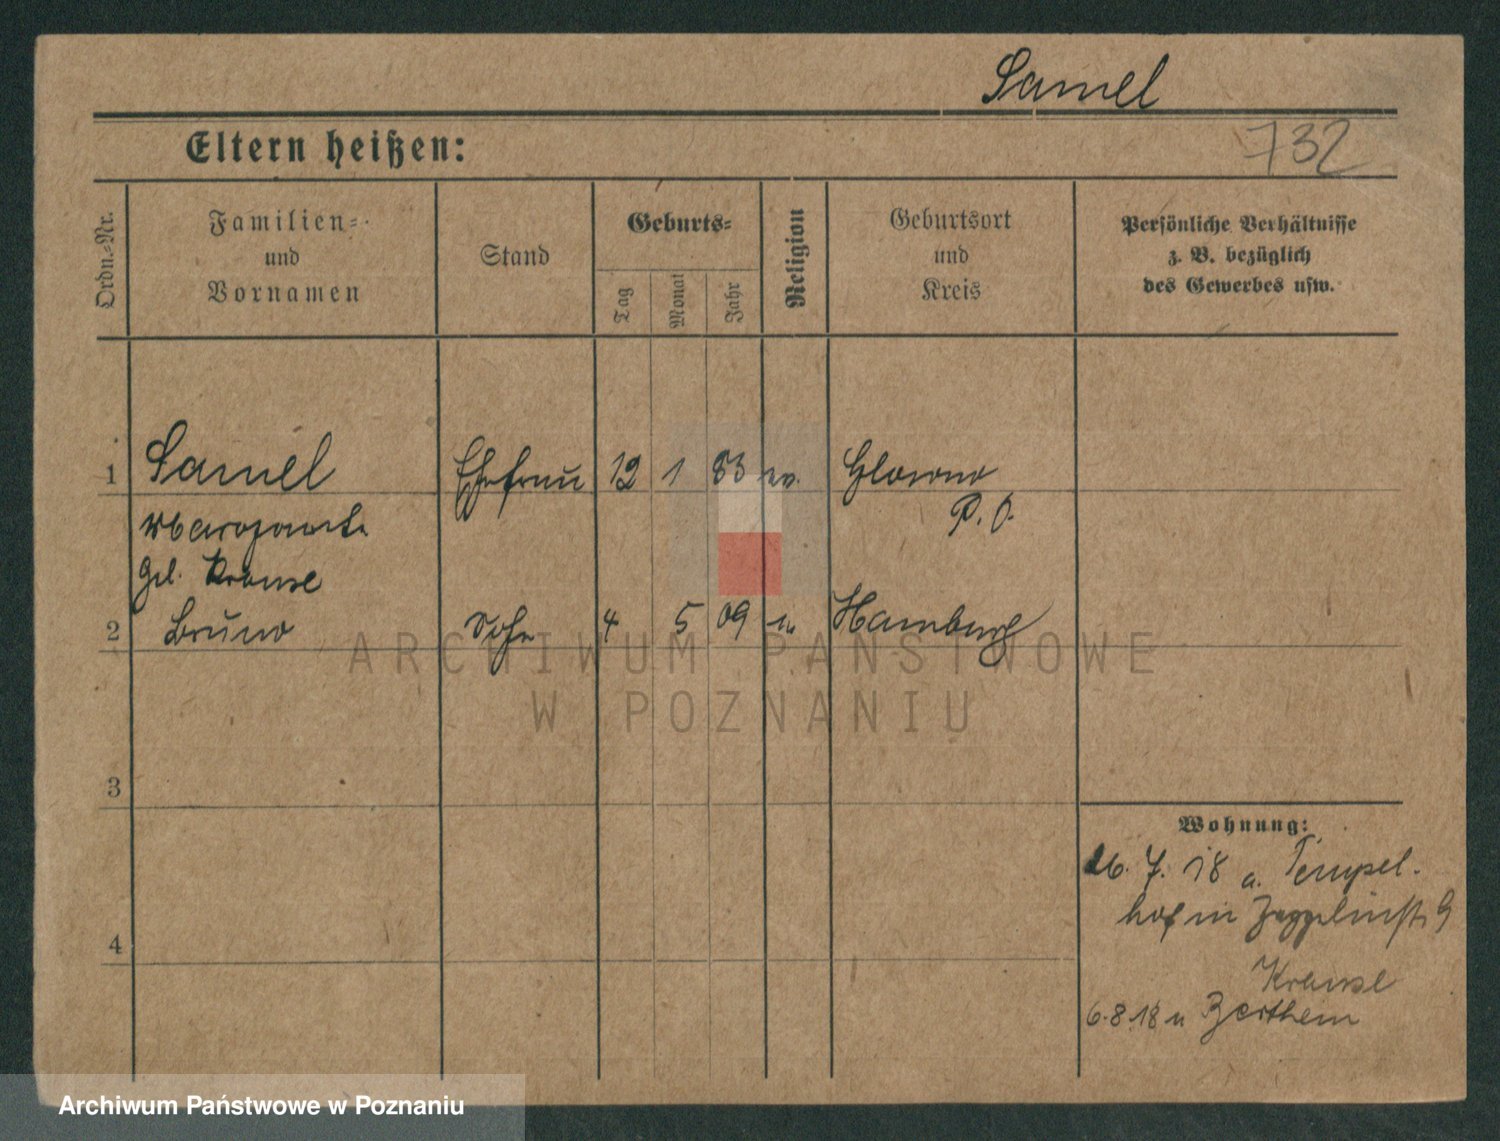 Samel
Eltern heißen:
732
Ordn.-Nr.
Familien-
und
Vornamen
Stand
Geburts-
Tag
Monat
Jahr
Religion
Geburtsort
und
Kreis
Persönliche Verhältnisse
z. B. bezüglich
des Gewerbes usw.
1 Samel Ehefrau 12 1 83 ev.
P. O.
Margarete
geb. Krause
2 Bruno Sohn 4 5 09 Hamburg
3
4
Wohnung:
26. 7. 18 a. Tempel-
hof in Zeppelinstr 9
Krause
6.8.18 n
ARCHIWUM PAŃSTWOWE
W POZNANIU
Archiwum Państwowe w Poznaniu